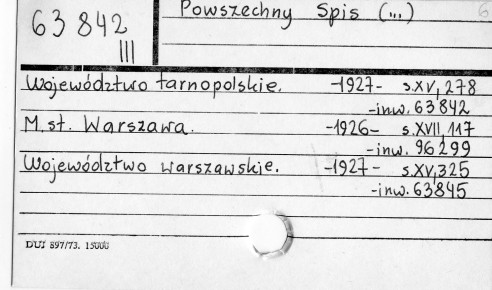 63 842
III
Powszechny Spis (...)
6
Województwo tarnopolskie. -1927- s.XV, 278
-inw. 63842
M.st. Warszawa. -1926- s.XVII, 117
-inw. 96299
Województwo warszawskie. -1927- s.XV, 325
-inw. 63845
DUJ 897/73. 15000